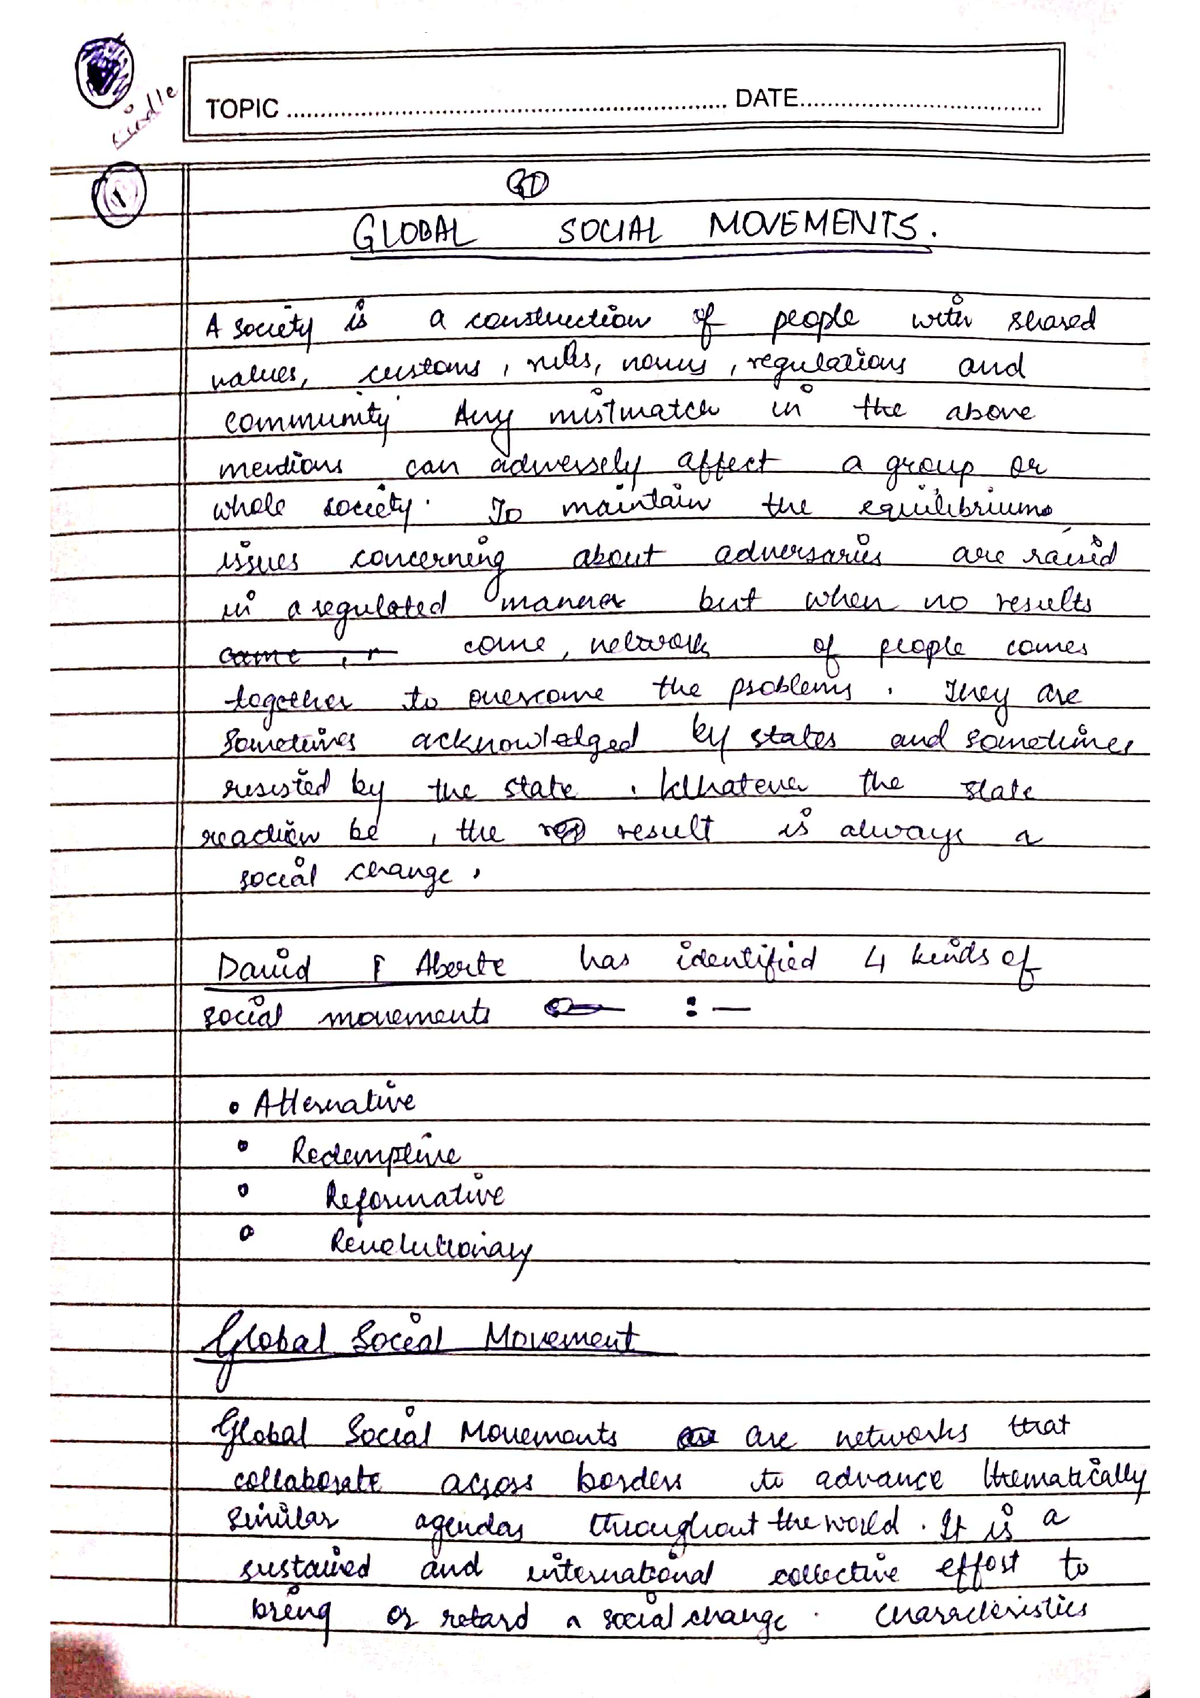 Kindle
TOPIC ................................................................ DATE....................................
1
GLOBAL SOCIAL MOVEMENTS.
A society is a construction of people with shared
values, customs, rules, norms, regulations and
community. Any mistmatch in the above
mentions can adversely affect a group or
whole society. To maintain the equilibrium,
issues concerning about adversaries are raised
in a regulated manner but when no results
came, r come, network of people comes
together to overcome the problems. They are
sometimes acknowledged by states and sometimes
resisted by the state. Whatever the state
reaction be, the result is always a
social change.
David F Aberle has identified 4 kinds of
social movements :—
• Alternative
• Redemptive
• Reformative
• Revolutionary
Global Social Movement
Global Social Movements are networks that
collaborate across borders to advance thematically
similar agendas throughout the world. It is a
sustained and international collective effort to
bring or retard a social change. Characteristics